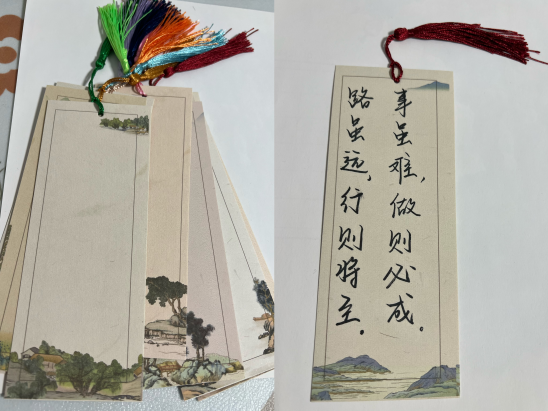 事虽难，做则必成。
路虽远，行则将至。